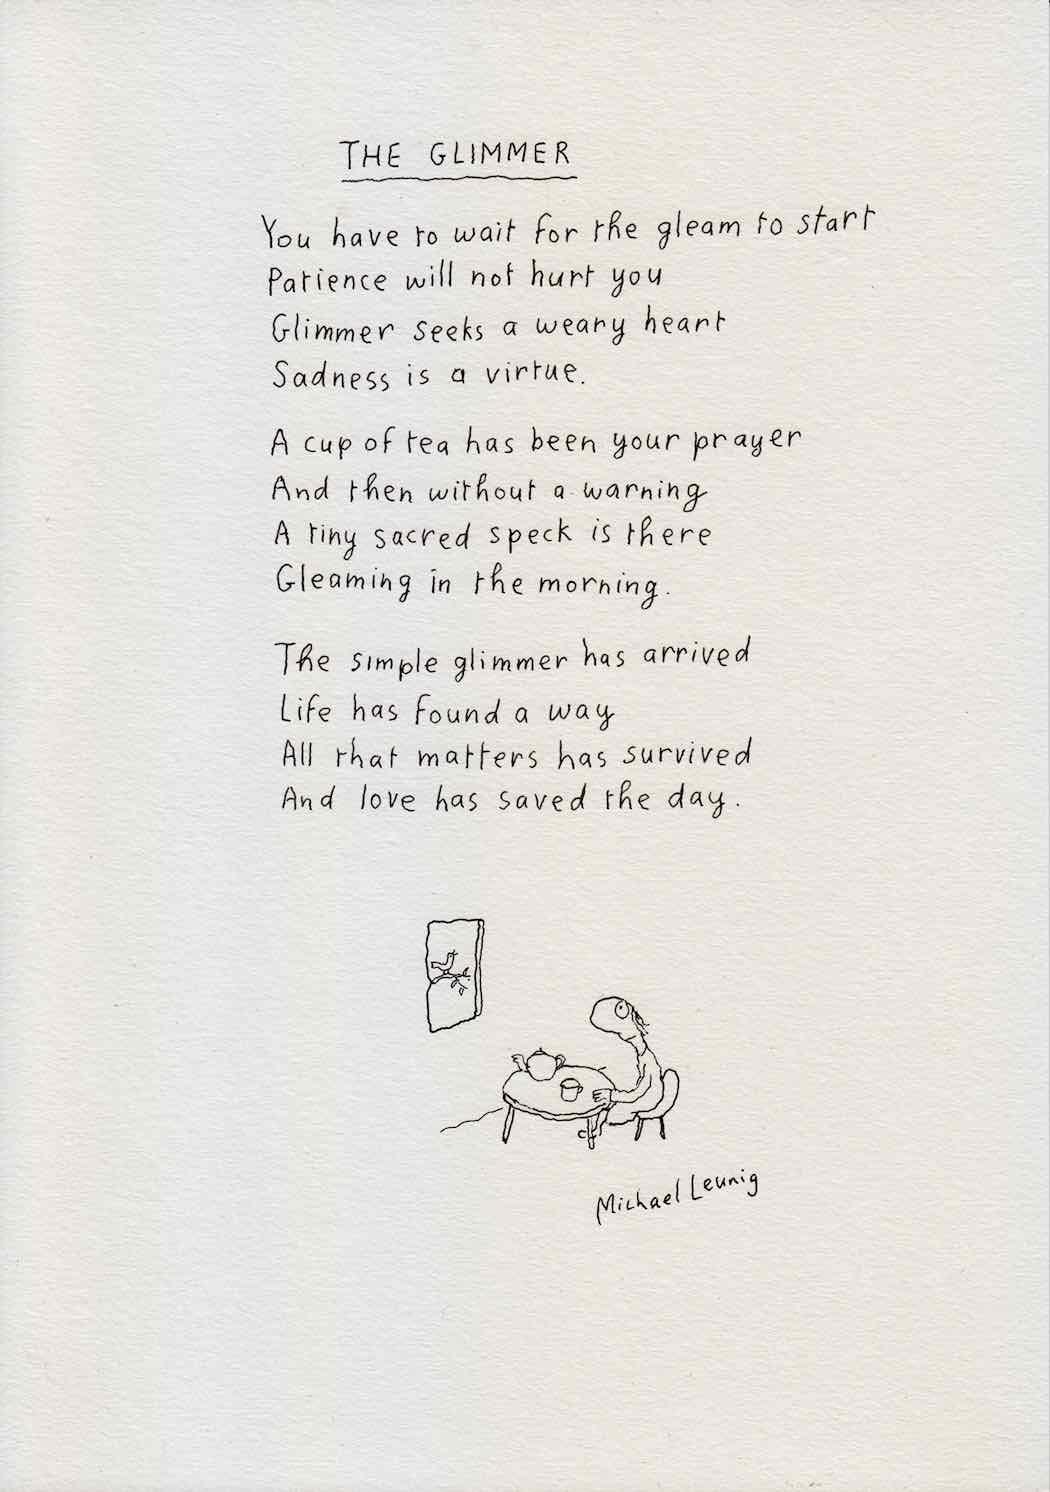 THE GLIMMER
You have to wait for the gleam to start
Patience will not hurt you
Glimmer seeks a weary heart
Sadness is a virtue.
A cup of tea has been your prayer
And then without a warning
A tiny sacred speck is there
Gleaming in the morning.
The simple glimmer has arrived
Life has found a way
All that matters has survived
And love has saved the day.
Michael Leunig